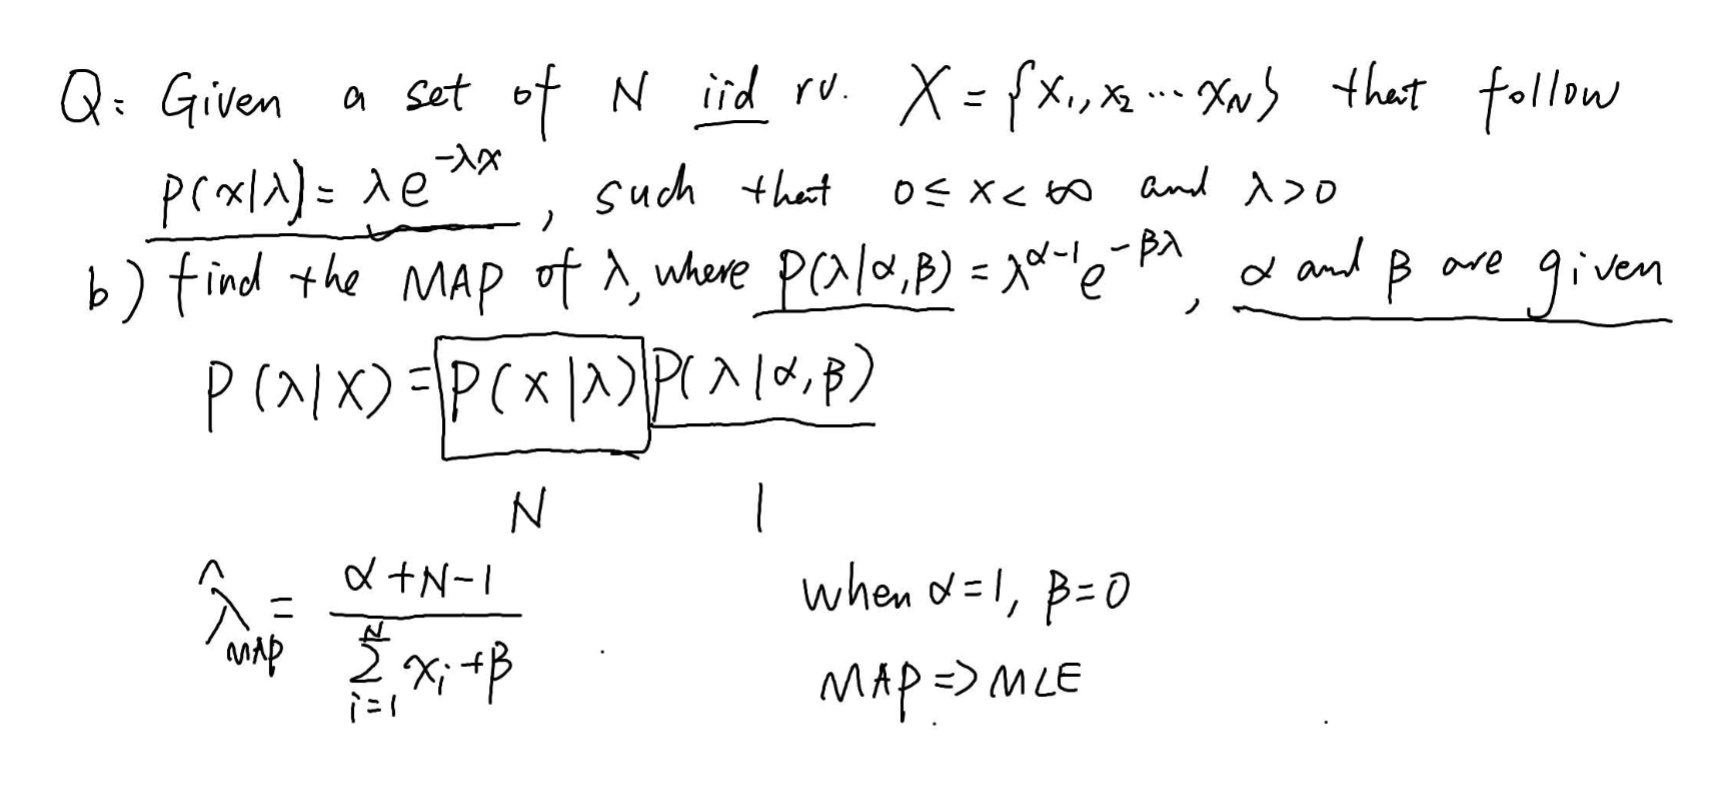 Q: Given a set of N iid rv. X = {x₁, x₂ ... x_N} that follow
P(x|λ) = λe^{-λx}, such that 0 ≤ x < ∞ and λ>0
b) find the MAP of λ, where P(λ|α,β) = λ^{α-1}e^{-βλ}, α and β are given
P(λ|X) = P(X|λ)P(λ|α,β)
N 1
λ̂_MAP = (α+N-1)/(∑_{i=1}^{N} x_i+β)
when α=1, β=0
MAP => MLE